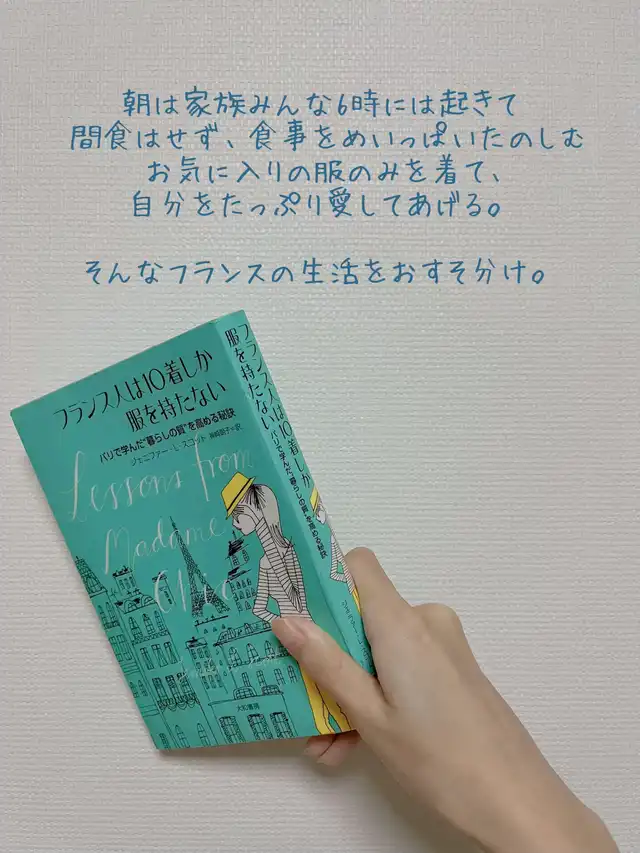 朝は家族みんな6時には起きて
間食はせず、食事をめいっぱいたのしむ
お気に入りの服のみを着て、
自分をたっぷり愛してあげる。
そんなフランスの生活をおすそ分け。
フランス人は10着しか
服を持たない
パリで学んだ“暮らしの質”を高める秘訣
ジェニファー・L・スコット 神崎朗子◎訳
Lessons from
Madame
Chic
大和書房
フランス人は10着しか
服を持たない
パリで学んだ“暮らしの質”を高める秘訣